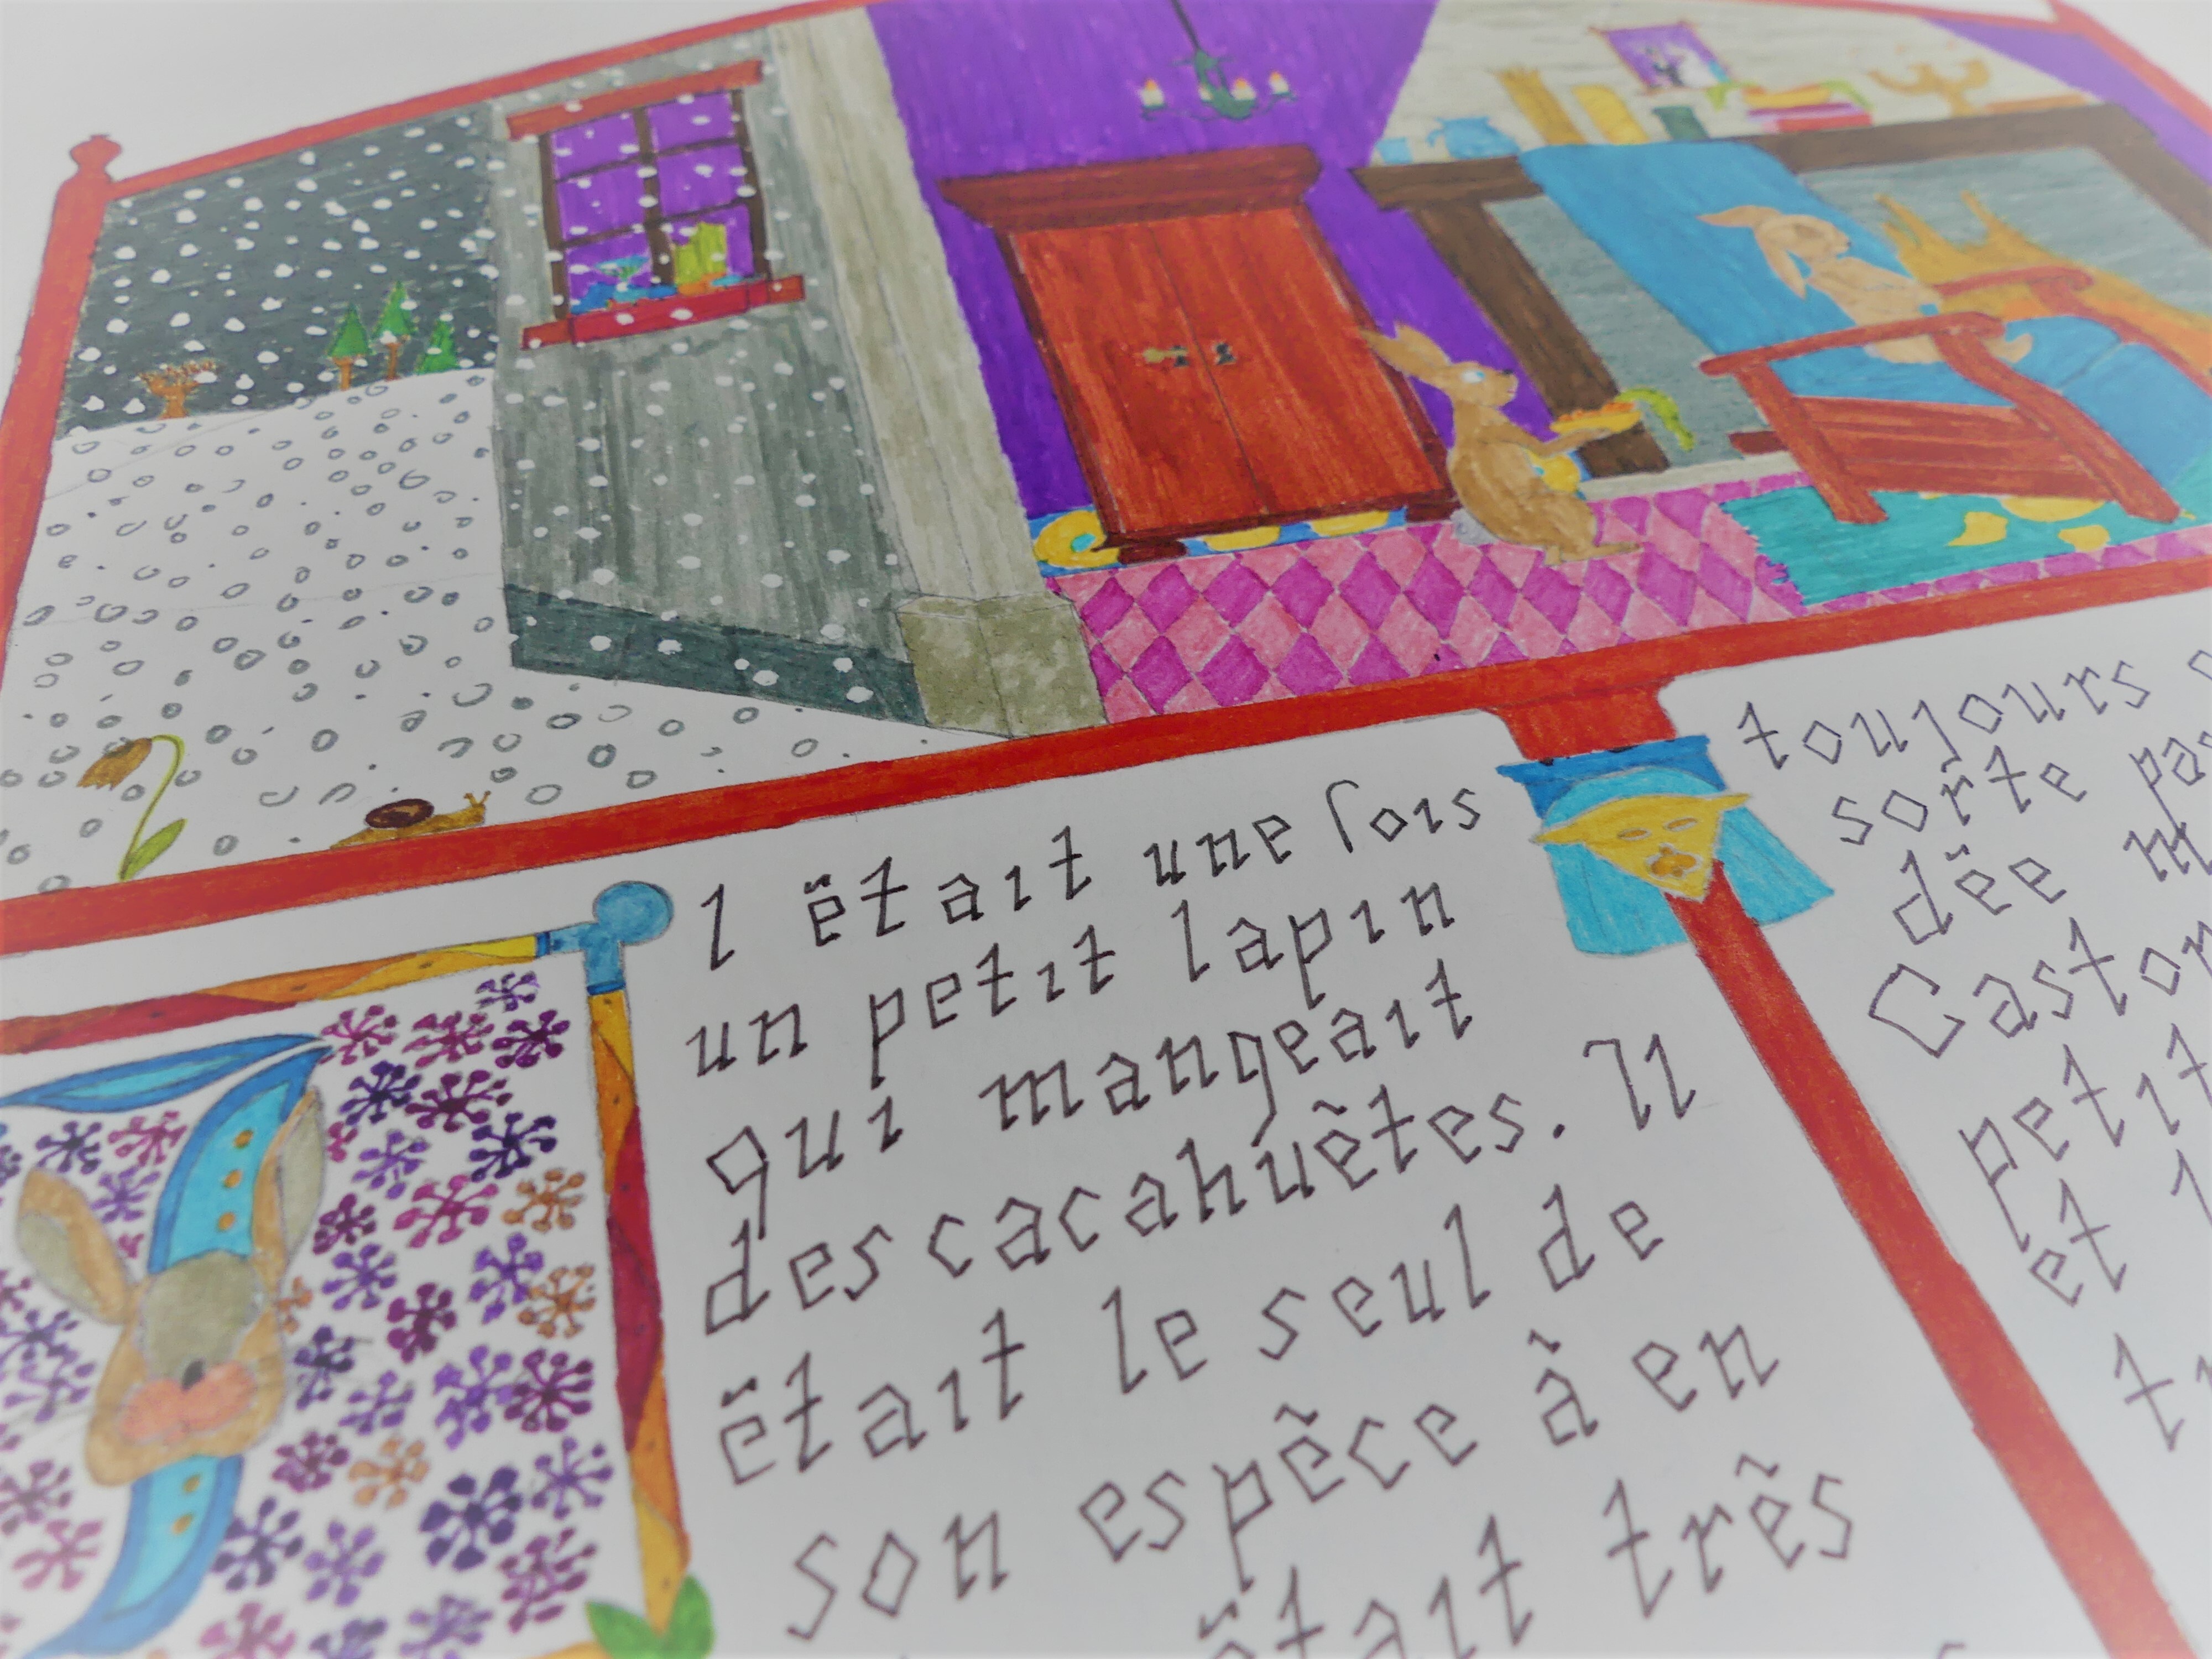 l était une fois
un petit lapin
qui mangeait
des cacahuètes. Il
était le seul de
son espèce à en
était très
toujours
sorte
dée
Castor
petit
et